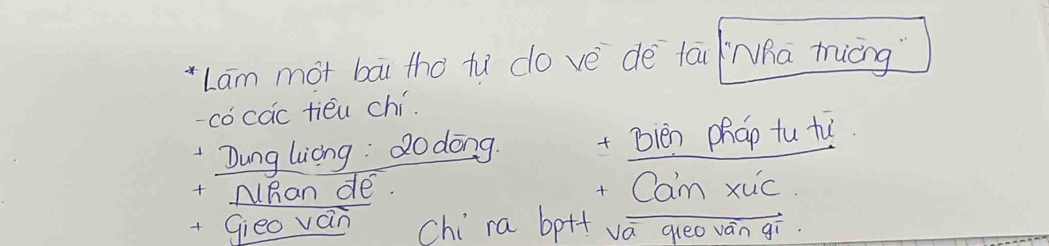 *Làm một bài thơ tự do về đề tài "Nhà trường"
-có các tiêu chí.
+ Dung lượng: 20 dòng.
+ Biện pháp tu từ.
+ Nhan đề.
+ Cảm xúc.
+ Gieo vần
Chỉ ra bptt và gieo vần gì.